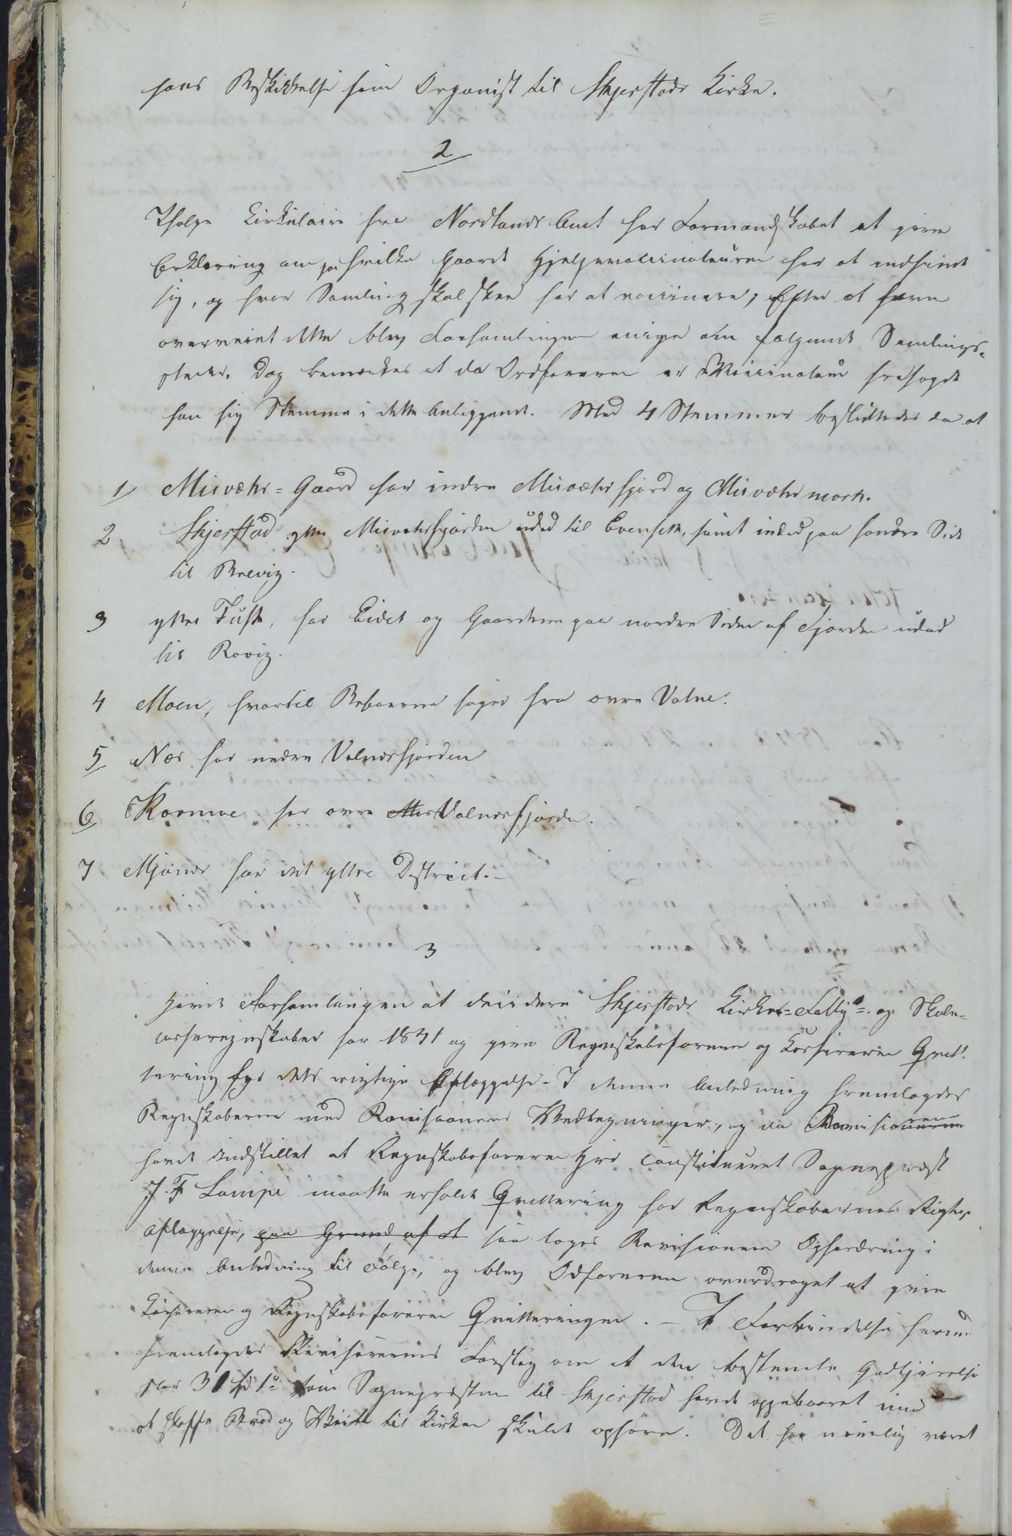 hans Beskikkelse som Organist til Skjerstads Kirke.
2
Ifølge Cirkulaire fra Nordlands Amt har Formandskabet at give
Erklæring om paa hvilke Gaarde Hjelpevaccinateuren har at indfinde
sig, og hvor Samling skal skee for at vaccinere; Efter at have
overveiet dette blev Forsamlingen enige om følgende Samlings-
steder. Dog bemærkes at da Ordføreren er Vaccinateur frasagde
han sig Stemme i dette Anliggende. Med 4 Stemmer besluttedes da at
1/ Misvær-Gaard for indre Misværfjord og Misværmark.
2 Skjerstad ytre Misværfjorden udad til Evenseth, samt ind paa søndre Side
til Brevig.
3 ytter Tuft, for Eidet og Gaardene paa nordre Siden af Fjorden udad
til Røvig.
4 Moen, hvortil Beboerne søger fra øvre Valne.
5 Næs for nedre Valnesfjorden
6 Kosmoe for øvre Valnesfjorden.
7 Mjønes for det yttre District.
3
Havde Forsamlingen at decidere Skjerstads Kirke-Fattig- og Skole-
casseregnskaber for 1841 og give Regnskabsføreren og Kassereren Qvit-
tering for dets rigtige Aflæggelse - I denne Anledning fremlagdes
Regnskaberne med Revisionens Vedtegninger, og da Revisionen
havde indstillet at Regnskabsføreren Hrr constitueret Sognepræst
J. F. Lampe maatte erholde Qvittering for Regnskabernes Rigtige
Aflæggelse, paa Grund af at saa toges Revisionens Opfordring i
denne Anledning til Følge, og blev Ordføreren overdraget at give
Kassereren og Regnskabsføreren Qvitteringen. — I Forbindelse hermed
fremlagdes Revisorernes Forslag om at den bestemte Godtgjørelse
som Sognepræsten til Skjerstad havde oppebaaret med
at skaffe Brød og Viin til Kirken skulde ophøre. Det har nemlig været